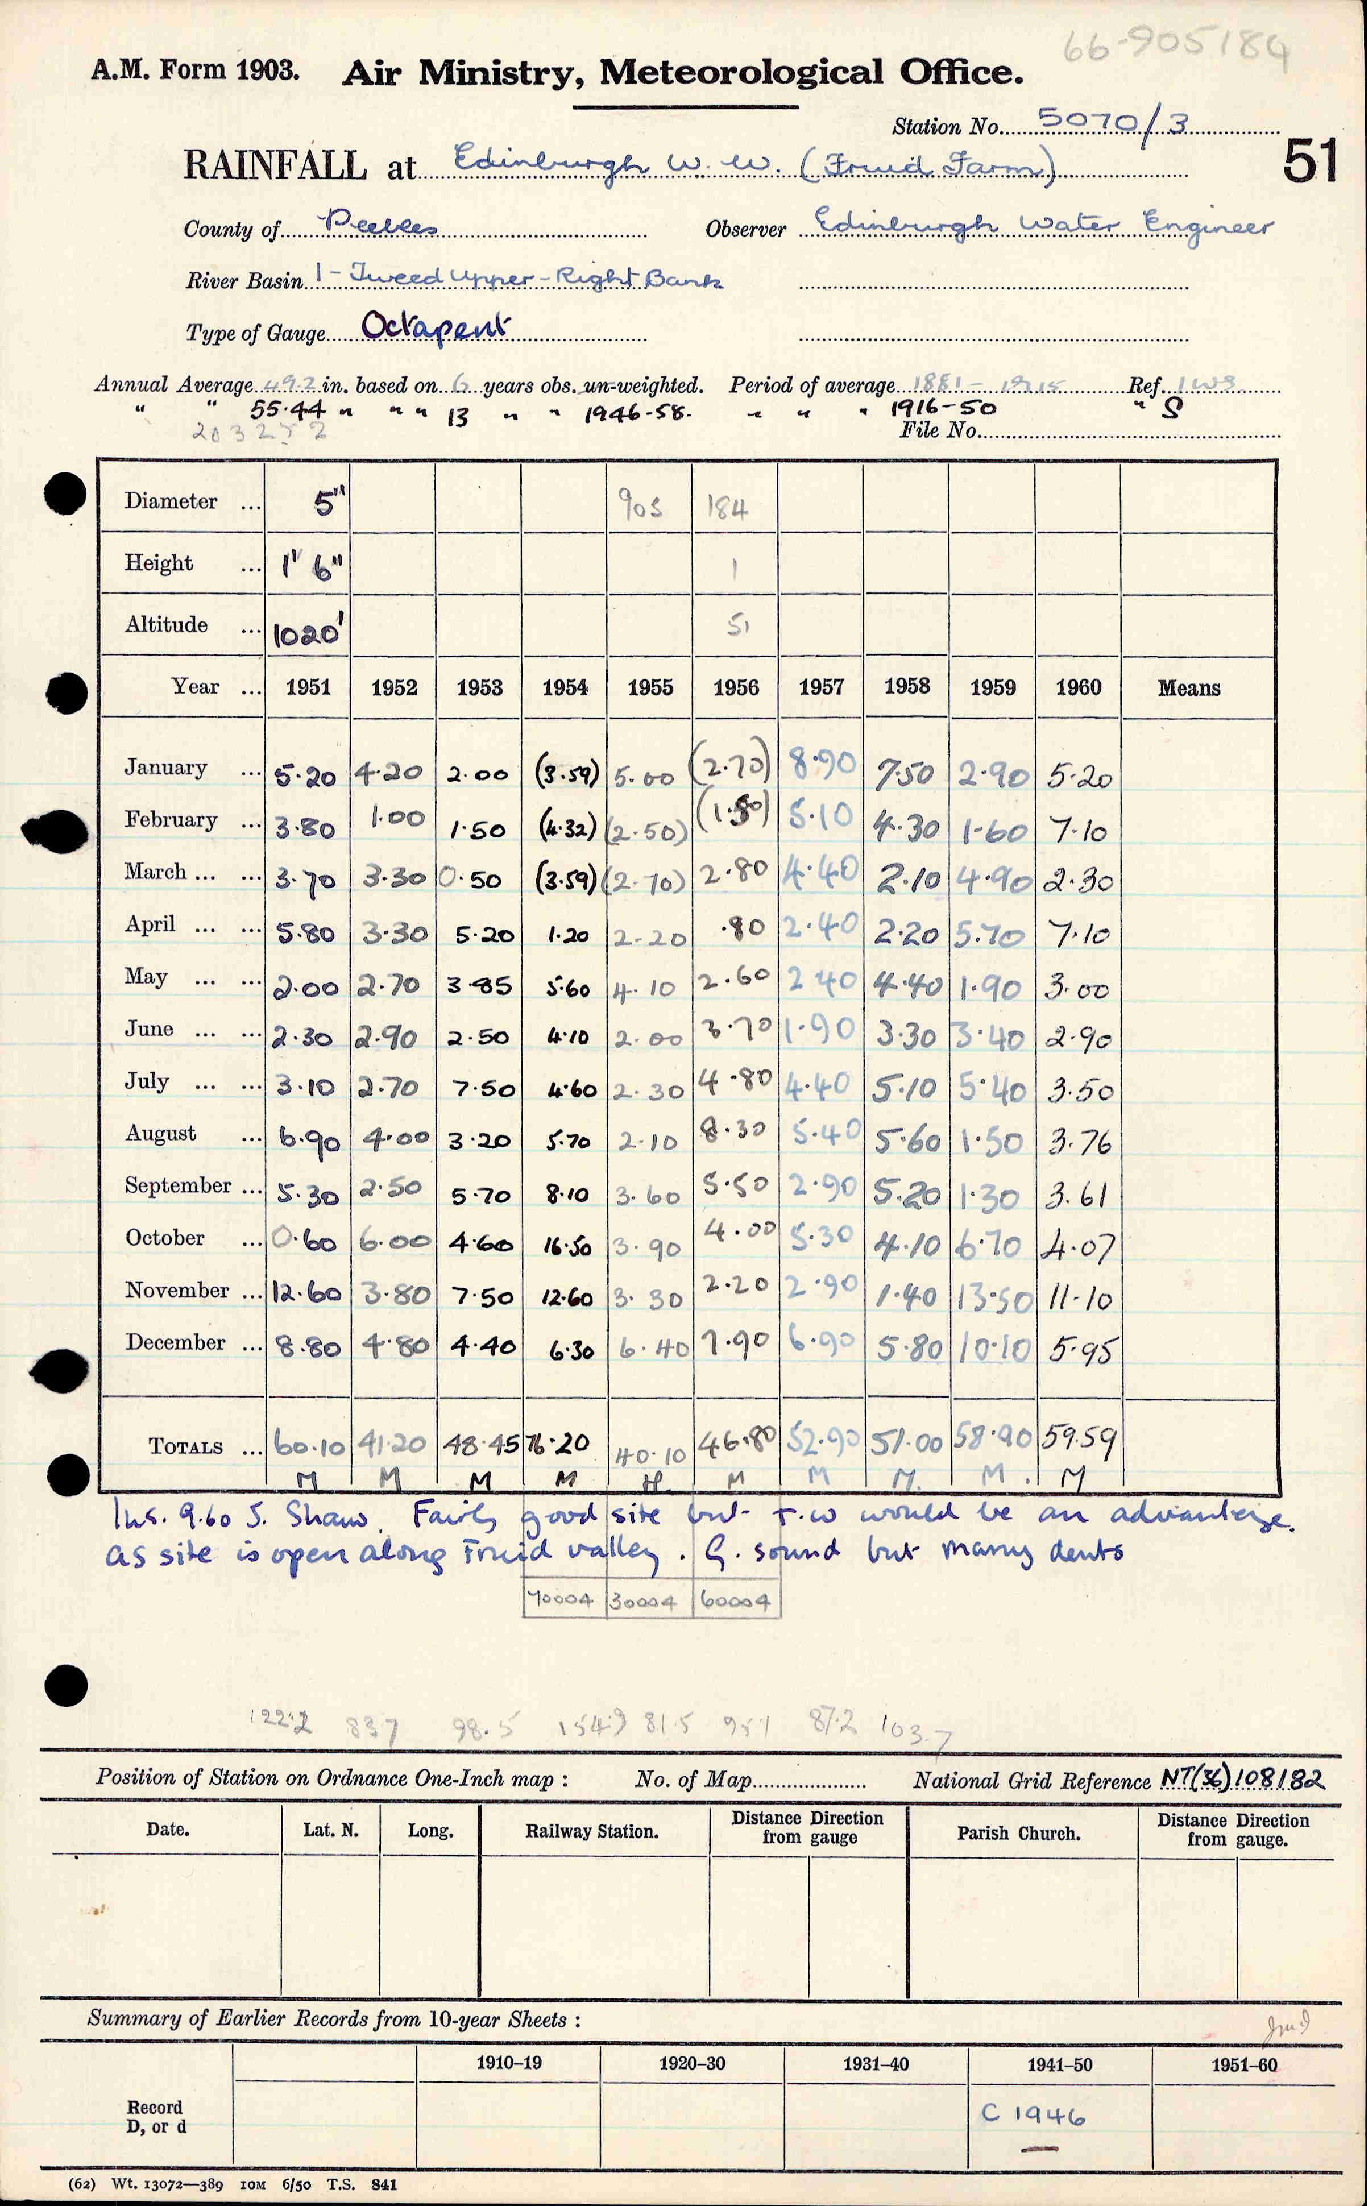 66-905184
A.M. Form 1903. Air Ministry, Meteorological Office.
Station No. 5070/3
51
RAINFALL at Edinburgh W. W. (Fruid Farm)
County of Peebles Observer Edinburgh Water Engineer
River Basin 1 - Tweed Upper - Right Bank
Type of Gauge Octapent
Annual Average 49.2 in. based on 6 years obs. un-weighted. Period of average 1881 - 1915 Ref. IWS
" " 55.44 " " " 13 " " 1946-58. " " " 1916-50 " S
File No.
Diameter ... 5" 905 184
Height ... 1' 6" 1
Altitude ... 1020' 51
Year ... 1951 1952 1953 1954 1955 1956 1957 1958 1959 1960 Means
January ... 5.20 4.20 2.00 (3.59) 5.00 (2.70) 8.90 7.50 2.90 5.20
February ... 3.80 1.00 1.50 (4.32) (2.50) (1.50) 5.10 4.30 1.60 7.10
March ... ... 3.70 3.30 0.50 (3.59) (2.70) 2.80 4.40 2.10 4.90 2.30
April ... ... 5.80 3.30 5.20 1.20 2.20 .80 2.40 2.20 5.70 7.10
May ... ... 2.00 2.70 3.85 5.60 4.10 2.60 2.40 4.40 1.90 3.00
June ... ... 2.30 2.90 2.50 4.10 2.00 3.70 1.90 3.30 3.40 2.90
July ... ... 3.10 2.70 7.50 4.60 2.30 4.80 4.40 5.10 5.40 3.50
August ... 6.90 4.00 3.20 5.70 2.10 8.30 5.40 5.60 1.50 3.76
September ... 5.30 2.50 5.70 8.10 3.60 5.50 2.90 5.20 1.30 3.61
October ... 0.60 6.00 4.60 16.50 3.90 4.00 5.30 4.10 6.70 4.07
November ... 12.60 3.80 7.50 12.60 3.30 2.20 2.90 1.40 13.50 11.10
December ... 8.80 4.80 4.40 6.30 6.40 7.90 6.90 5.80 10.10 5.95
TOTALS ... 60.10 41.20 48.45 76.20 40.10 46.80 52.90 51.00 58.90 59.59
M M M M M M M M. M. M
Ins. 9.60 J. Shaw. Fairly good site but T.W would be an advantage.
as site is open along Fruid valley. G. sound but many dents
70004 30004 60004
122.2 837 98.5 154.9 81.5 951 87.2 103.7
Position of Station on Ordnance One-Inch map : No. of Map National Grid Reference NT(36)108182
Date. Lat. N. Long. Railway Station. Distance from gauge Direction Parish Church. Distance from gauge. Direction
Summary of Earlier Records from 10-year Sheets :
1910–19 1920–30 1931–40 1941–50 1951–60
Record D, or d C 1946
(62) Wt. 13072—389 10M 6/50 T.S. 841